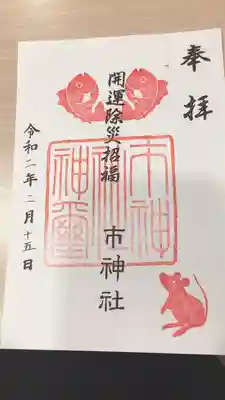 奉拝
開運除災招福
市神社
市神社神璽
令和二年二月十五日